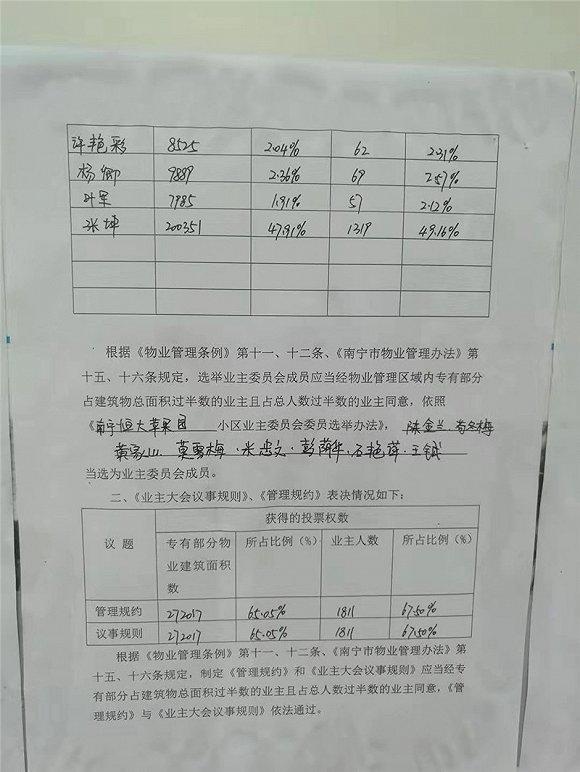 许艳彩 8525 2.04% 62 2.31%
杨卿 9889 2.36% 69 2.57%
叶军 7985 1.91% 57 2.12%
张坤 200351 47.91% 1319 49.16%
根据《物业管理条例》第十一、十二条、《南宁市物业管理办法》第
十五、十六条规定，选举业主委员会成员应当经物业管理区域内专有部分
占建筑物总面积过半数的业主且占总人数过半数的业主同意，依照
《南宁恒大苹果园 小区业主委员会委员选举办法》，陈金兰
莫雪梅、石艳萍、王钺
当选为业主委员会成员。
二、《业主大会议事规则》、《管理规约》表决情况如下：
获得的投票权数
议 题 专有部分物 所占比例（%） 业主人数 所占比例（%）
业建筑面积
数
管理规约 272017 65.05% 1811 67.50%
议事规则 272017 65.05% 1811 67.50%
根据《物业管理条例》第十一、十二条、《南宁市物业管理办法》第
十五、十六条规定，制定《管理规约》和《业主大会议事规则》应当经专
有部分占建筑物总面积过半数的业主且占总人数过半数的业主同意，《管
理规约》与《业主大会议事规则》依法通过。